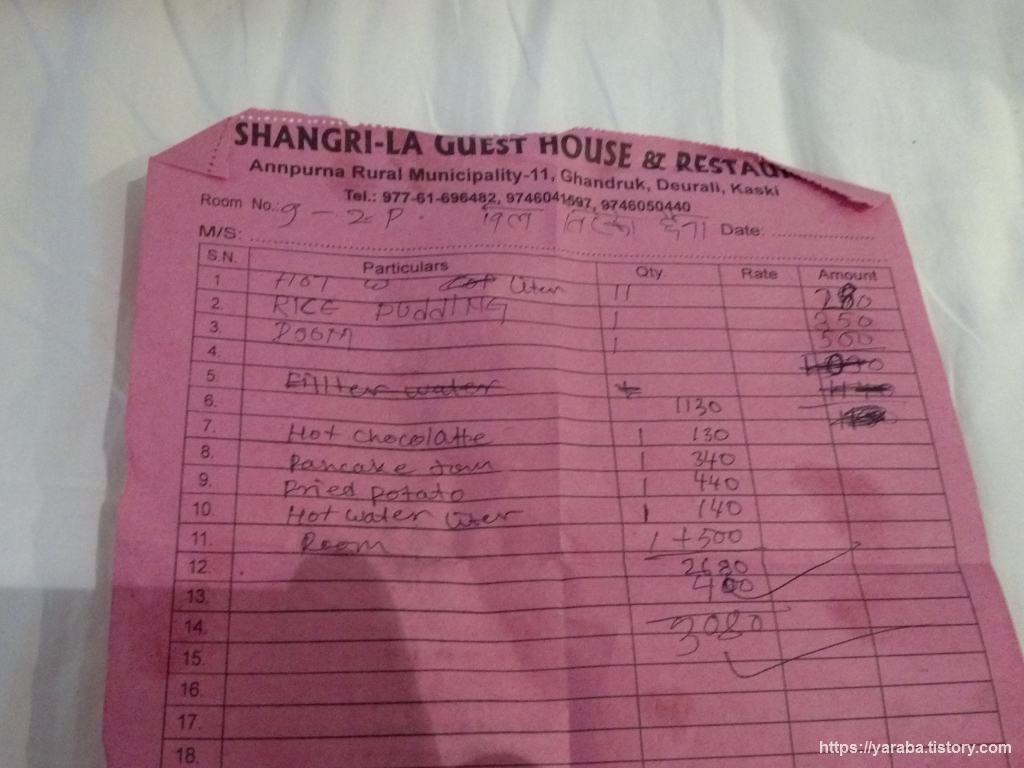 SHANGRI-LA GUEST HOUSE & RESTAU
Annpurna Rural Municipality-11, Ghandruk, Deurali, Kaski
Tel.: 977-61-696482, 9746041597, 9746050440
Room No.: 9 - 2 P.
M/S: Date:
S.N. Particulars Qty. Rate Amount
1. HOT W Liter 11 280
2. RICE PUDDING 1 350
3. ROOM 1 500
4.
5 Fillter water
6. 1130
7. Hot chocolatte 1 130
8. Pancake 1 340
9. Fried Potato 1 440
10. Hot water Liter 1 140
11. Room 1 +500
12. 2680
13. 400
14. 3080
15.
16.
17.
18.
https://yaraba.tistory.com